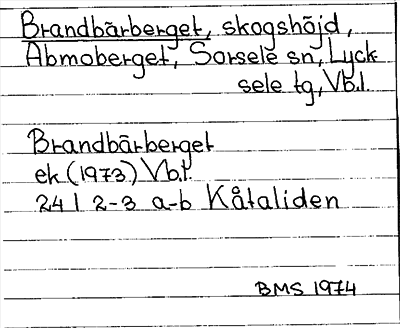 Brandbärberget, skogshöjd,
Abmoberget, Sorsele sn, Lyck-
sele tg, Vb.l.
Brandbärberget
ek (1973) Vb.l.
24 I 2-3 a-b Kåtaliden
BMS 1974